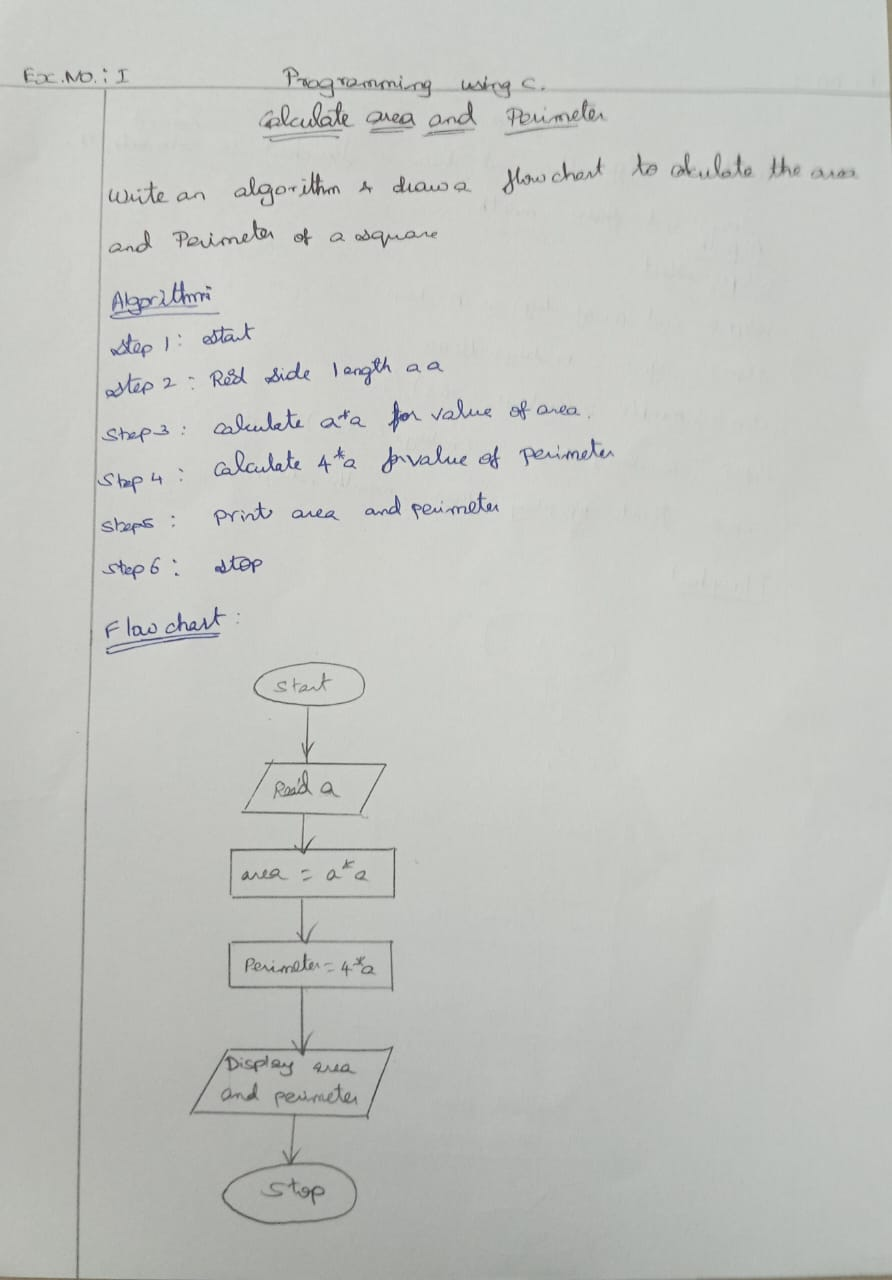 Ex.No.: I
Programming using C.
Calculate area and Perimeter
Write an algorithm & draw a flowchart to calculate the area
and Perimeter of a square
Algorithm
Step 1: Start
Step 2: Read side length a a
Step 3: calculate a*a for value of area.
Step 4: Calculate 4*a for value of perimeter
Step 5: print area and perimeter
Step 6: Stop
Flow chart:
Start
Read a
area = a*a
Perimeter = 4*a
Display area
and perimeter
Stop